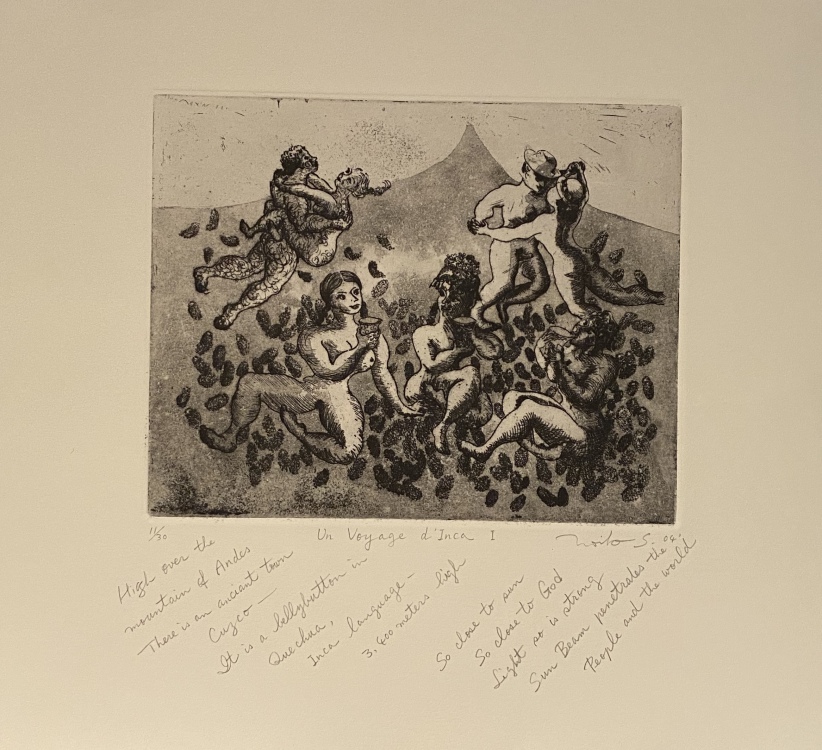 11/30
Un Voyage d'Inca I
S. '98
High over the
mountain of Andes
There is an ancient town
Cuzco —
It is a bellybutton in
Quechua,
Inca language —
3,400 meters high
So close to sun
So close to God
Light so is strong
Sun Beam penetrates the
People and the world